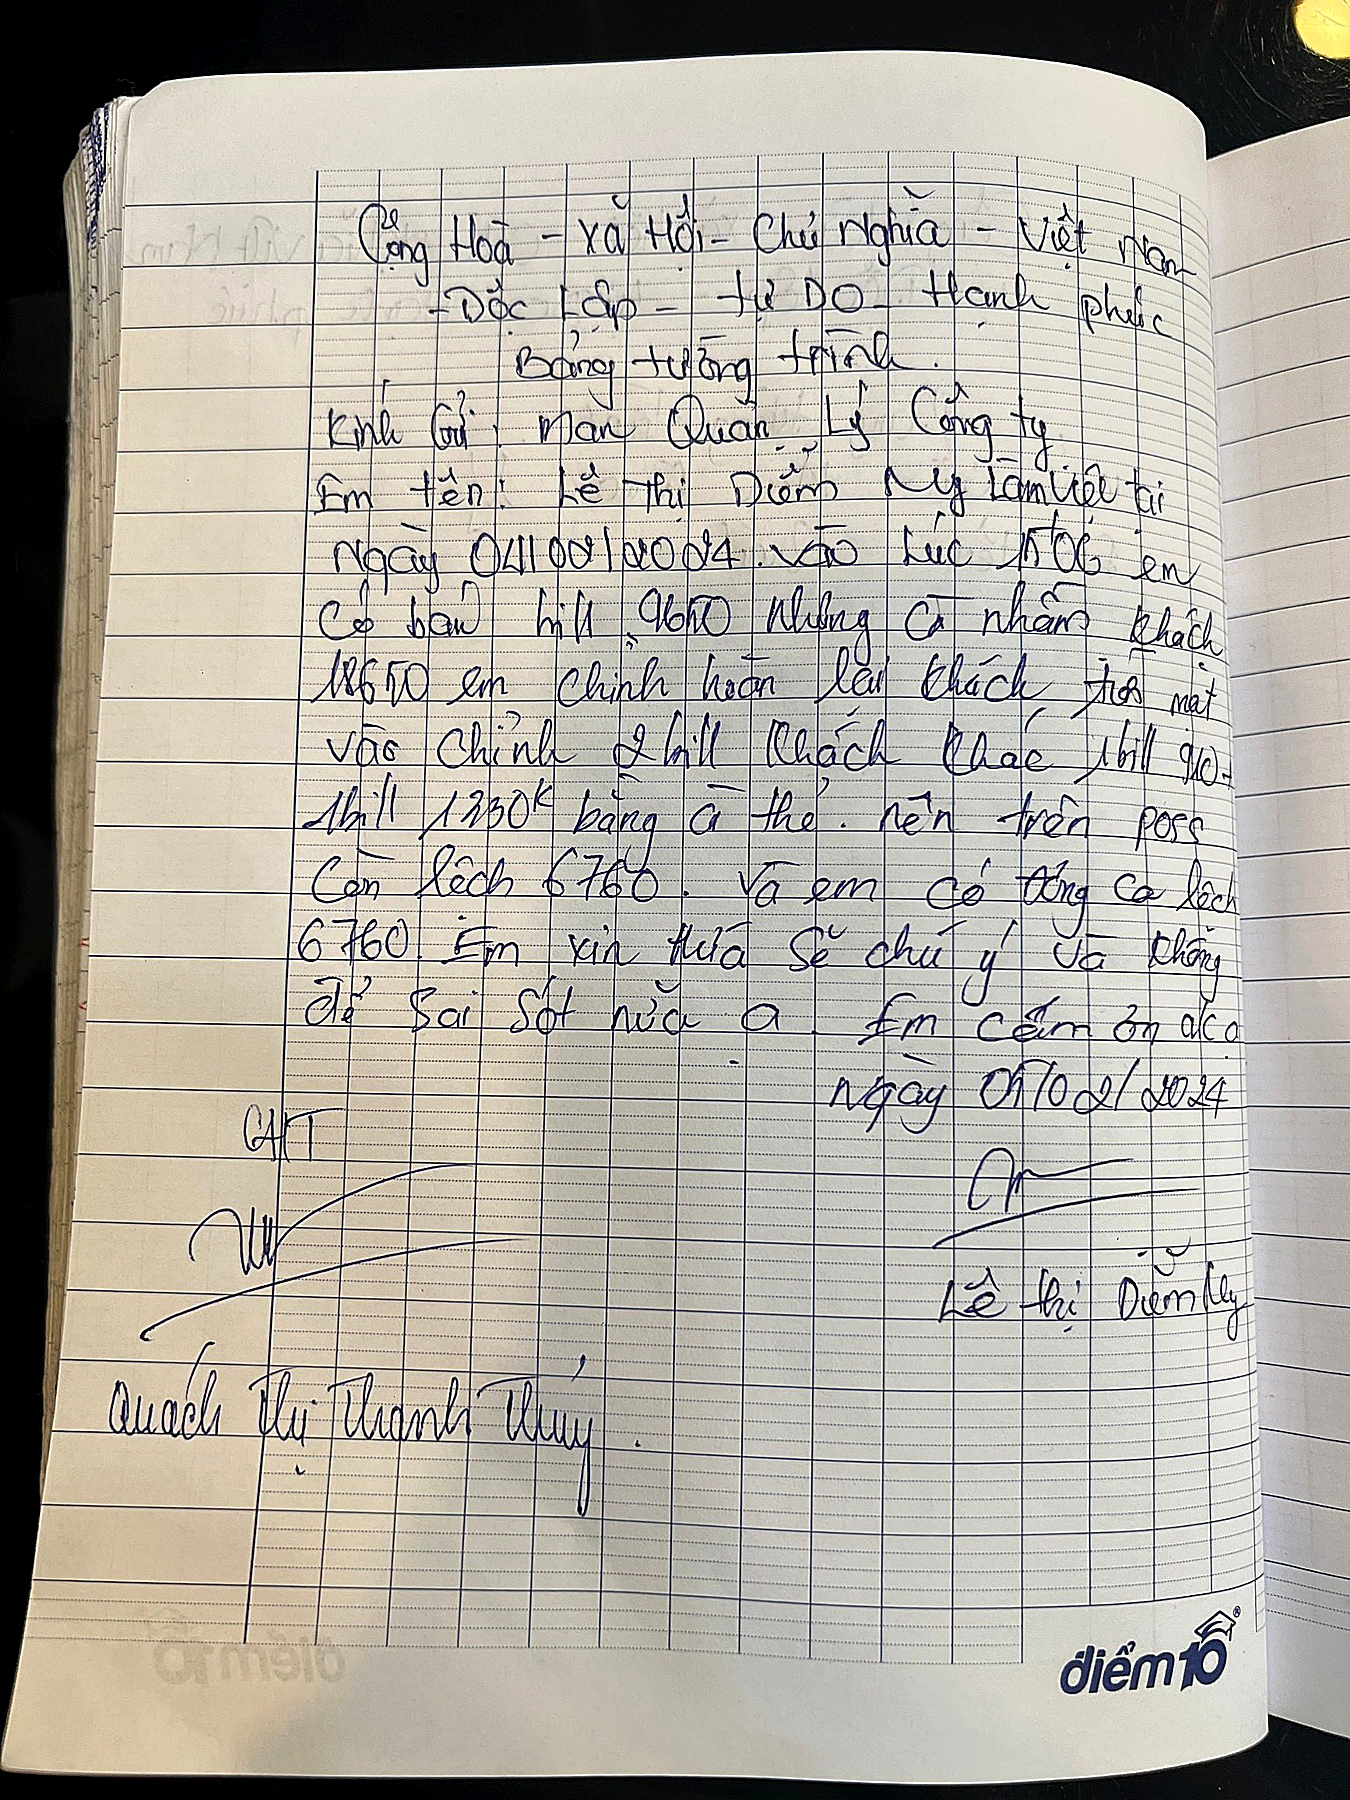 Cộng Hoà - Xã Hội - Chủ Nghĩa - Việt Nam
- Độc Lập - Tự Do - Hạnh phúc
Bảng tường trình.
Kính Gửi: Man Quản Lý Công ty
Em tên: Lê Thị Diễm My Làm việc tại
Ngày 04/02/2024. vào Lúc 15h06 em
Có bán bill 9650 Nhưng cà nhầm khách
18650 em chỉnh hoàn lại khách tiền mặt
vào chỉnh 2 bill khách khác 1 bill 910 +
1 bill 1230k bằng cà thẻ. nên trên poss
Còn lệch 6760. Và em có đóng ca lệch
6760. Em xin hứa sẽ chú ý và không
để sai sót nữa ạ. Em cảm ơn a/c ạ
Ngày 05/02/2024
CHT
Lê Thị Diễm My
Quách Thị Thanh Thuý.
điểm10